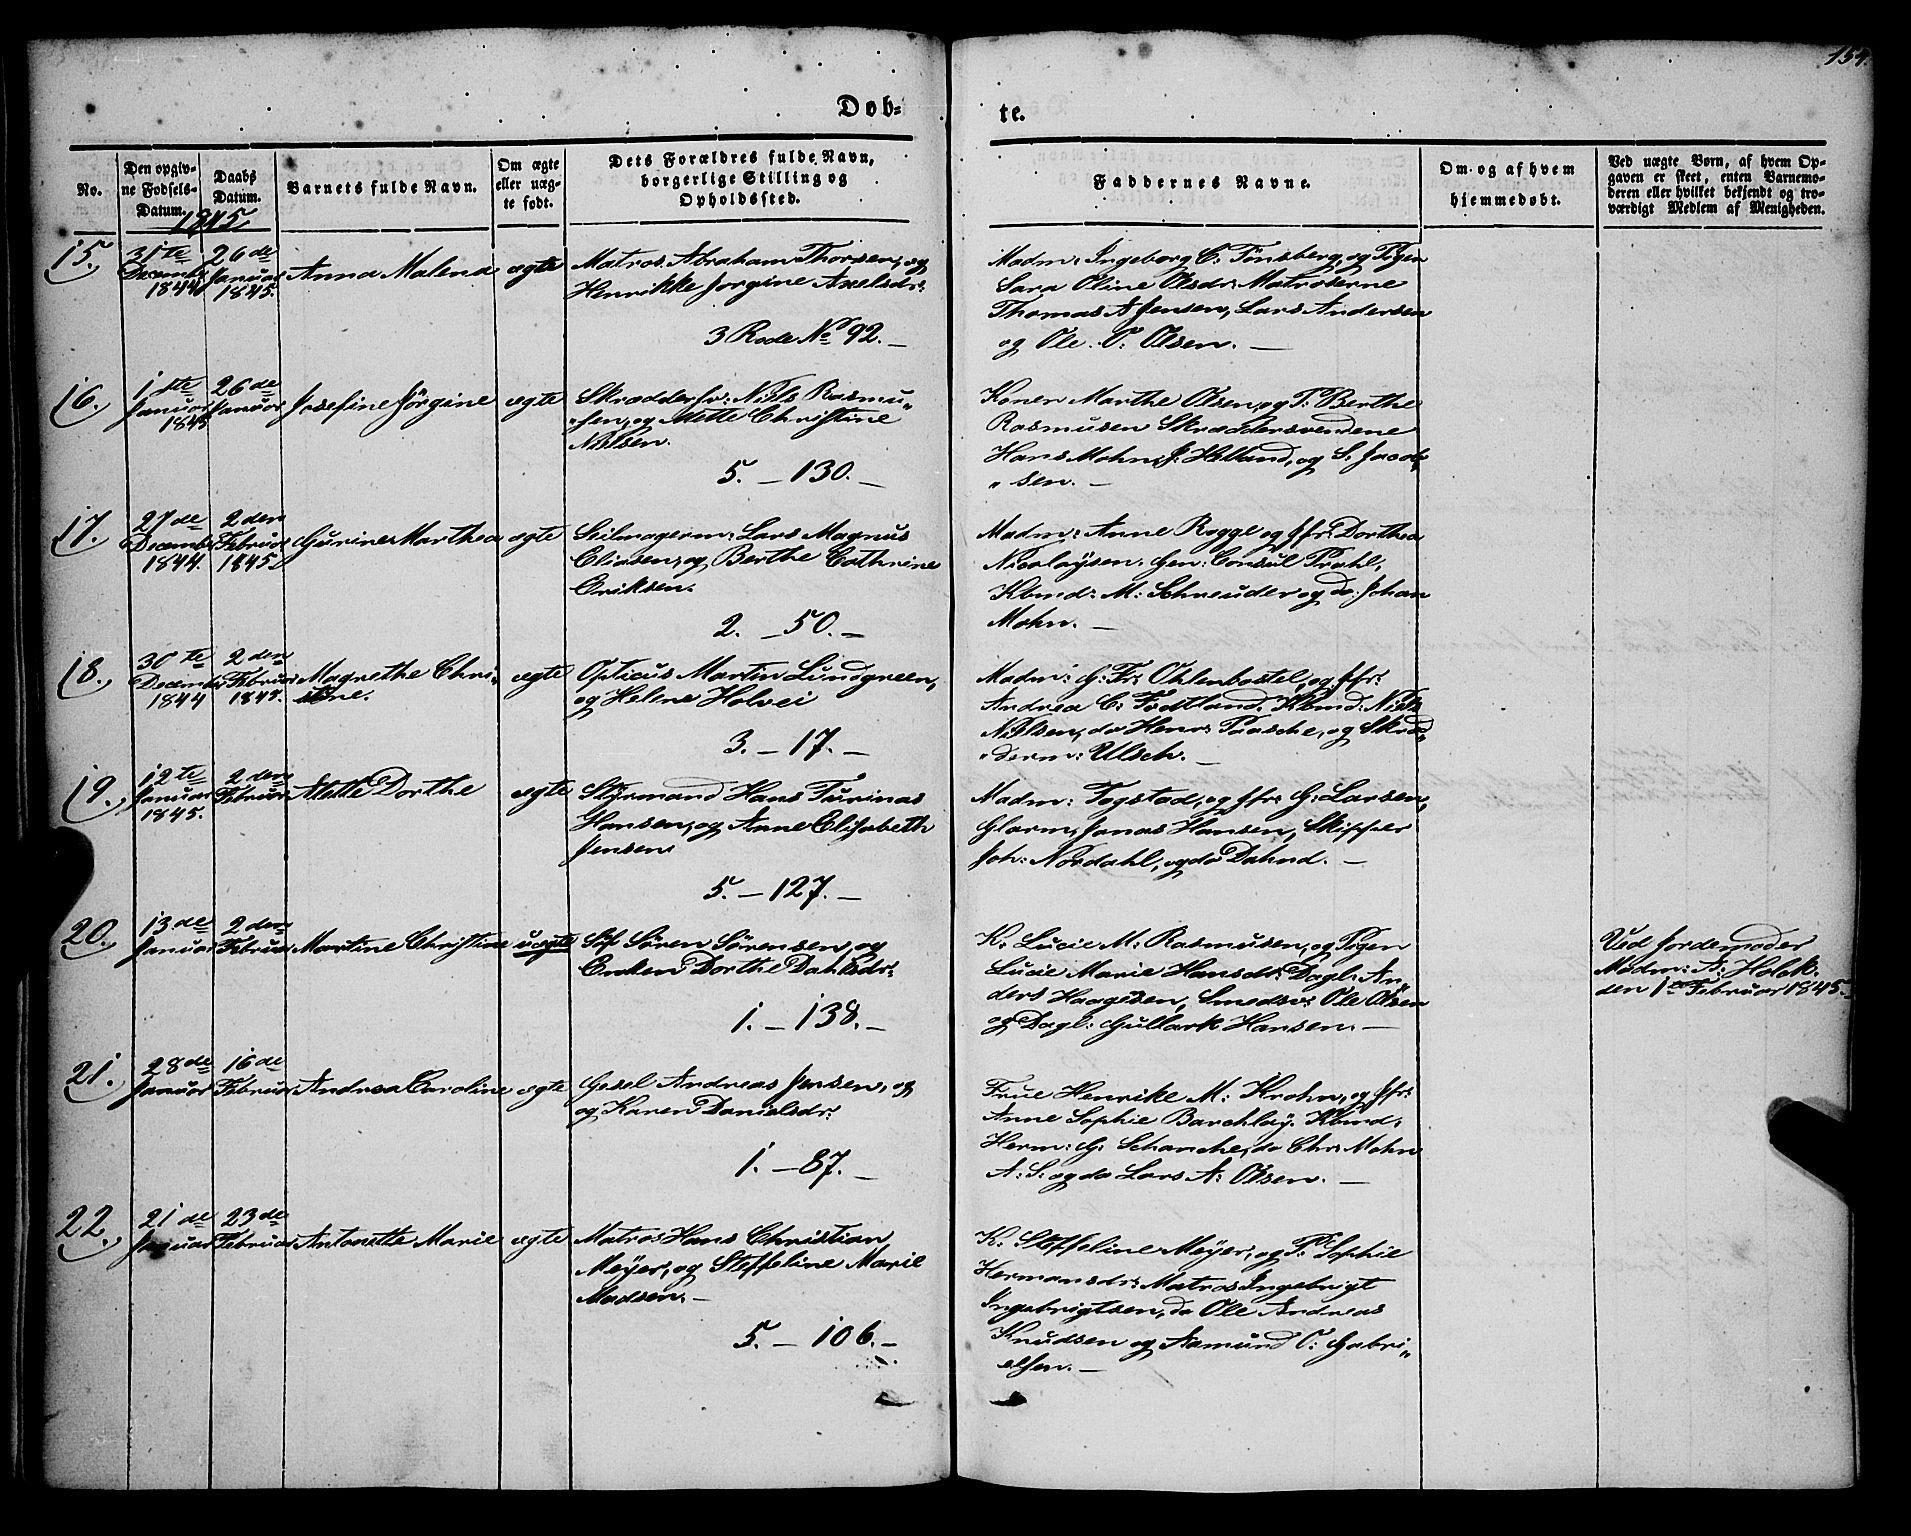 154.
Døb=
te.
No.
Den opgiv-
ne Fødsels-
Datum.
Daabs
Datum.
Barnets fulde Navn.
Om ægte
eller uæg-
te født.
Dets Forældres fulde Navn,
borgerlige Stilling og
Opholdssted.
Faddernes Navne.
Om og af hvem
hjemmedøbt.
Ved uægte Børn, af hvem Op-
gaven er skeet, enten Barnemo-
deren eller hvilket bekjendt og tro-
værdigt Medlem af Menigheden.
1845
15.
31te
Decembr
1844
26de
Januar
1845.
Anna Malena
ægte
Matros Abraham Thorsen, og
Henrikke Jorgine Axelsdr:
3 Rode No 92. —
Madm: Ingeborg C: Tønsberg, og Pigen
Sara Oline Olsdr: Matroserne
Thomas A Jensen, Lars Andersen
og Ole O: Olsen. —
16.
1ste
Januar
1845
26de
Januar
Josefine Jörgine
ægte
Skrædder sv: Niels Rasmu„
„sen, og Mette Christine
Nielsen.
5. — 130. —
Koner Marthe Olsen, og P: Berthe
Rasmusen Skræddersvendene
Hans Mohn, J: Helland, og S. Jacob„
„sen. —
17.
27de
Decembr
1844.
2den
Februar
1845.
Gurine Marthea
ægte
Seilmagerm: Lars Magnus
Eliasen, og Berthe Cathrine
Eriksen.
2. — 50. —
Madm: Anne Rogge og Jfr: Dorthea
Nicolaÿsen. Gen: Consul Prahl,
Kbmd: M: Schreuder og do. Johan
Mohn. —
18.
30te
Decembr
1844
2den
Februar
1845.
Magrethe Chri„
stine.
ægte
Opticus Martin Lundgreen,
og Helene Holvei
3. — 17. —
Madm: G: Fr: Ohlenbostel, og Jfr:
Andrea C: Fodtland. Kbmd: Niels
Nielsen, do Henr: Paasche, og Skræd„
„derm: Ulsch. —
19.
12te
Januar
1845.
2den
Februar
Mette Dorthe
ægte
Stÿrmand Hans Turinas
Hansen, og Anne Elisabeth
Jensen
5. — 127. —
Madm: Togstad, og Jfr: G: Larsen,
Glarm, Jonas Hansen, Skipper
Joh: Nordahl, og do Dahnd. —
20.
13de
Januar
2den
Februar
Martine Christine
uægte
Søf Søren Sørensen, og
Enken Dorthe Dahlsdr:
1. — 138. —
K: Lucie M: Rasmusen, og Pigen
Lucie Marie Hansdr: Dagl: An
ders Haagesen, Smedsv: Ole Olsen
og Dagl: Gullark Hansen. —
Ved Jordemoder
Madm: A: Holck.
den 1ste Februar 1845.
21.
28de
Januar
16de
Februar
Andrea Caroline
ægte
Gesel Andreas Jensen, og
og Karen Danielsdr:
1. — 87. —
Frue Henrike M: Krohn, og Jfr:
Anne Sophie Barchlaÿ. Kbmd:
Herm: G: Schanche, do Chr: Mohn
A: S: og do Lars A: Olsen. —
22.
21de
Januar
23de
Februar
Antonette Marie
ægte
Matros Hans Christian
Meÿer, og Steffeline Marie
Madsen. —
5. — 106. —
K: Steffeline Meÿer, og P: Sophie
Hermansdr: Matros Ingebrigt
Ingebrigtsen, do Ole Andreas
Knudsen og Aamund O: Gabri„
elsen. —